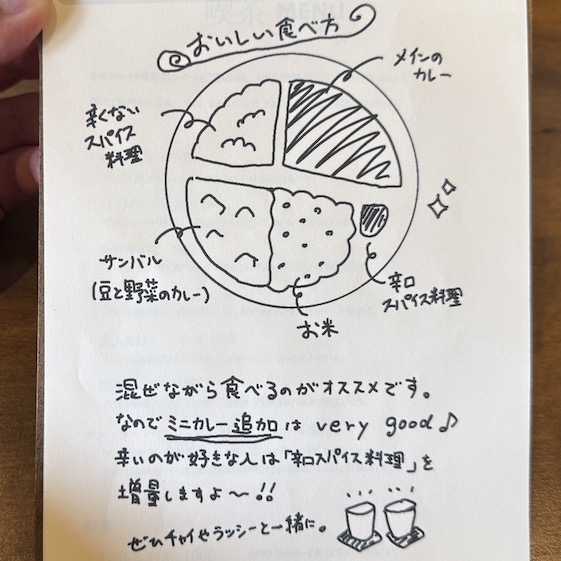 おいしい食べ方
メインの
カレー
辛くない
スパイス
料理
サンバル
(豆と野菜のカレー)
お米
辛口
スパイス料理
混ぜながら食べるのがオススメです。
なのでミニカレー追加は very good♪
辛いのが好きな人は「辛口スパイス料理」を
増量しますよ〜!!
ぜひチャイやラッシーと一緒に。